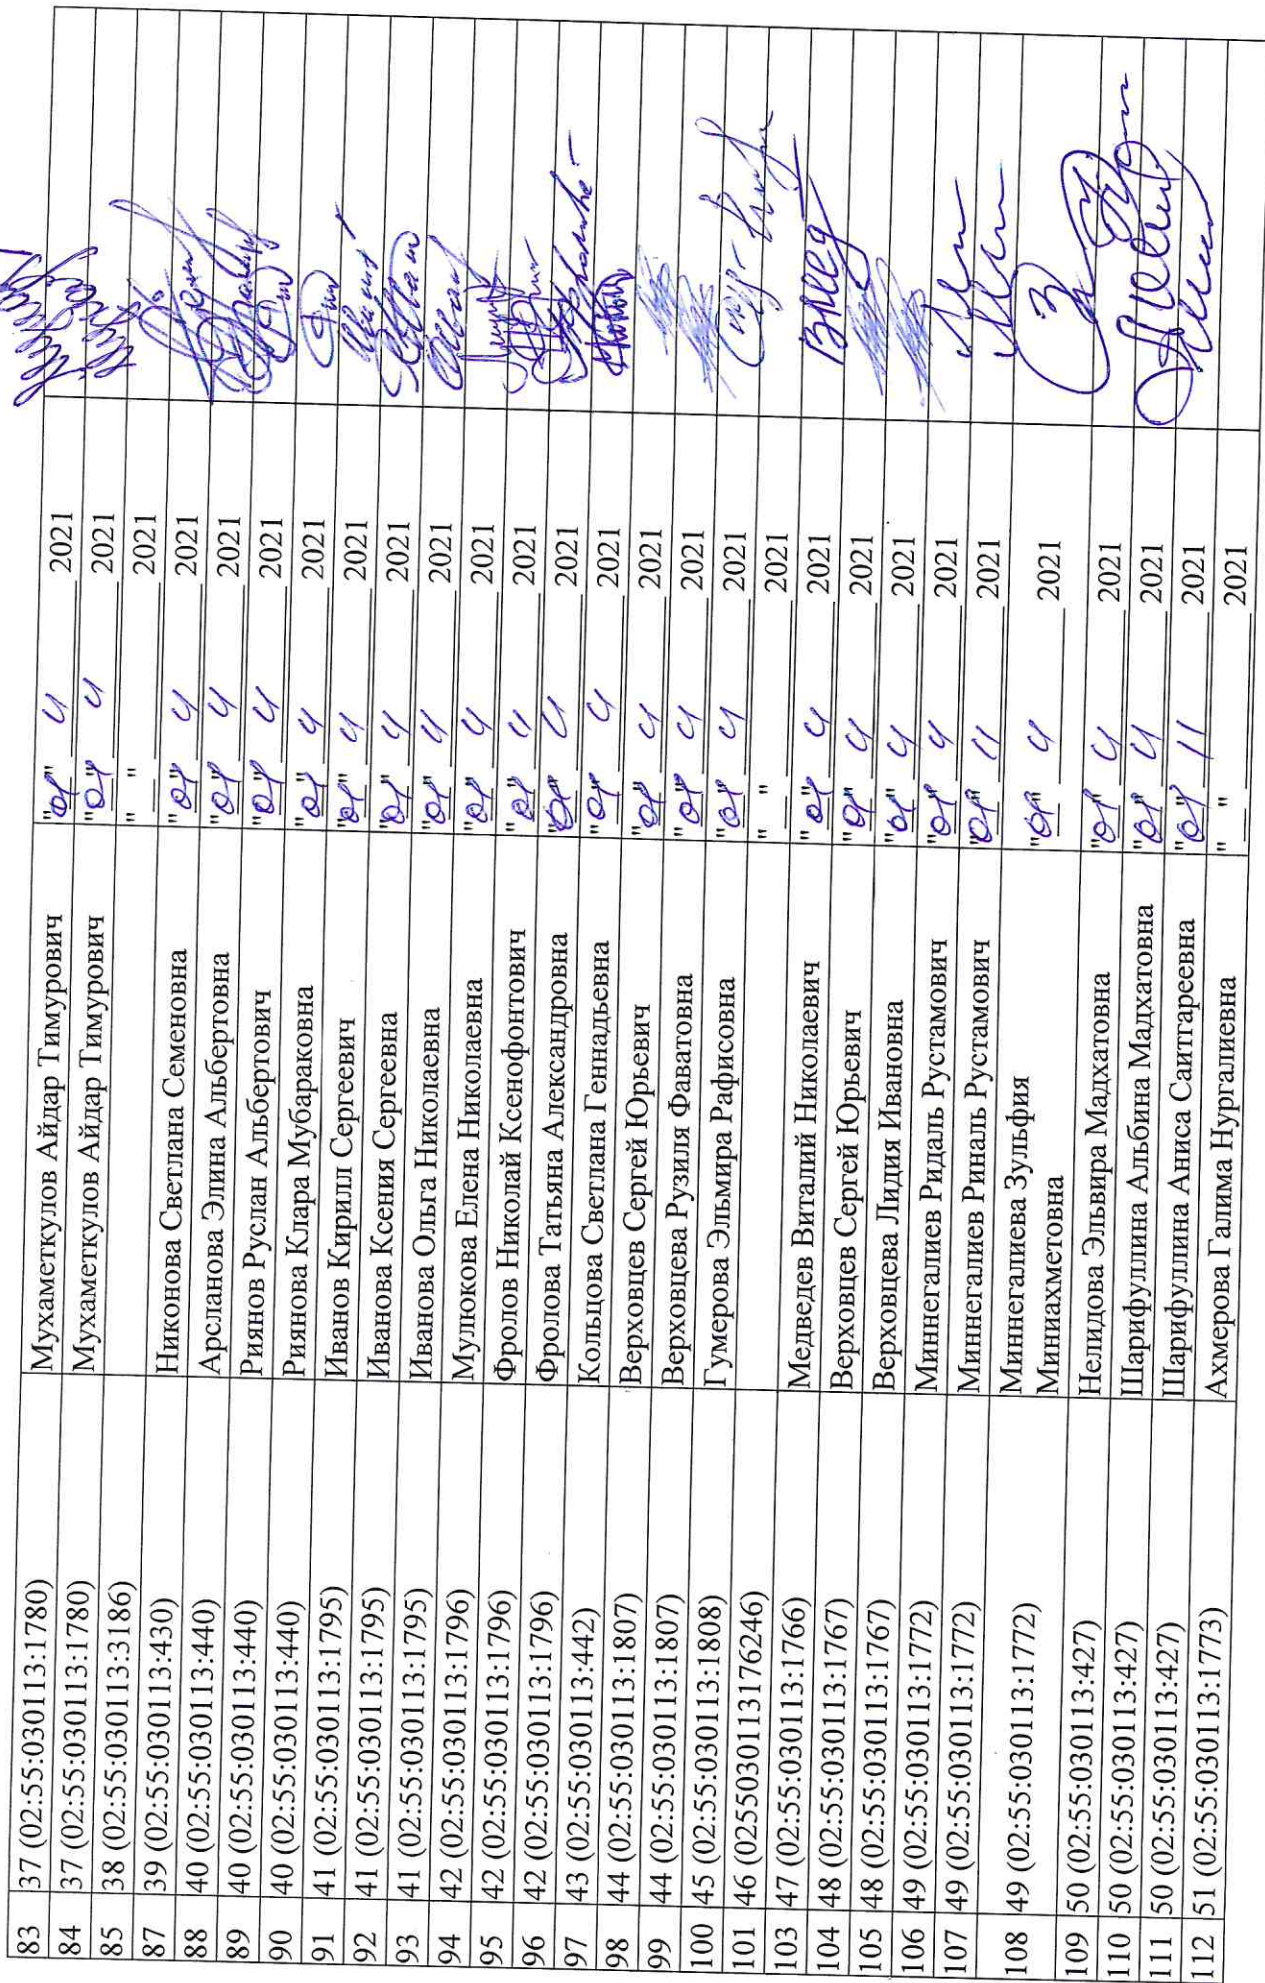 83 37 (02:55:030113:1780) Мухаметкулов Айдар Тимурович "01" 4 2021
84 37 (02:55:030113:1780) Мухаметкулов Айдар Тимурович "01" 4 2021
85 38 (02:55:030113:3186) " " 2021
87 39 (02:55:030113:430) Никонова Светлана Семеновна "01" 4 2021
88 40 (02:55:030113:440) Арсланова Элина Альбертовна "01" 4 2021
89 40 (02:55:030113:440) Риянов Руслан Альбертович "01" 4 2021
90 40 (02:55:030113:440) Риянова Клара Мубараковна "01" 4 2021
91 41 (02:55:030113:1795) Иванов Кирилл Сергеевич "01" 4 2021
92 41 (02:55:030113:1795) Иванова Ксения Сергеевна "01" 4 2021
93 41 (02:55:030113:1795) Иванова Ольга Николаевна "01" 4 2021
94 42 (02:55:030113:1796) Мулюкова Елена Николаевна "01" 4 2021
95 42 (02:55:030113:1796) Фролов Николай Ксенофонтович "01" 4 2021
96 42 (02:55:030113:1796) Фролова Татьяна Александровна "01" 4 2021
97 43 (02:55:030113:442) Кольцова Светлана Геннадьевна "01" 4 2021
98 44 (02:55:030113:1807) Верховцев Сергей Юрьевич "01" 4 2021
99 44 (02:55:030113:1807) Верховцева Рузиля Фаватовна "01" 4 2021
100 45 (02:55:030113:1808) Гумерова Эльмира Рафисовна "01" 4 2021
101 46 (02:55030113176246) " " 2021
103 47 (02:55:030113:1766) Медведев Виталий Николаевич "01" 4 2021
104 48 (02:55:030113:1767) Верховцев Сергей Юрьевич "01" 4 2021
105 48 (02:55:030113:1767) Верховцева Лидия Ивановна "01" 4 2021
106 49 (02:55:030113:1772) Миннегалиев Ридаль Рустамович "01" 4 2021
107 49 (02:55:030113:1772) Миннегалиев Риналь Рустамович "01" 4 2021
108 49 (02:55:030113:1772) Миннегалиева Зульфия "01" 4 2021
Миниахметовна
109 50 (02:55:030113:427) Нелидова Эльвира Мадхатовна "01" 4 2021
110 50 (02:55:030113:427) Шарифуллина Альбина Мадхатовна "01" 4 2021
111 50 (02:55:030113:427) Шарифуллина Аниса Саитгареевна "01" 4 2021
112 51 (02:55:030113:1773) Ахмерова Галима Нургалиевна " " 2021